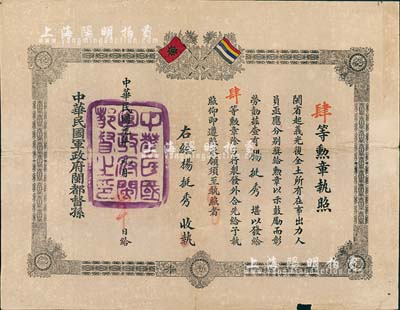 上海陽明拍賣
肆等勲章執照
閩省起義光復全土所有在事出力人
員亟應分別獎給勲章以示鼓勵而彰
勞勩茲查有楊挺秀堪以發給
肆等勲章除另行製發外合先給予執
照仰即遵照祗領須至執照者
右給楊挺秀收執
中華民
日給
中華民國軍政府閩都督孫
中華民國軍政府閩都督之印
上海陽明拍賣